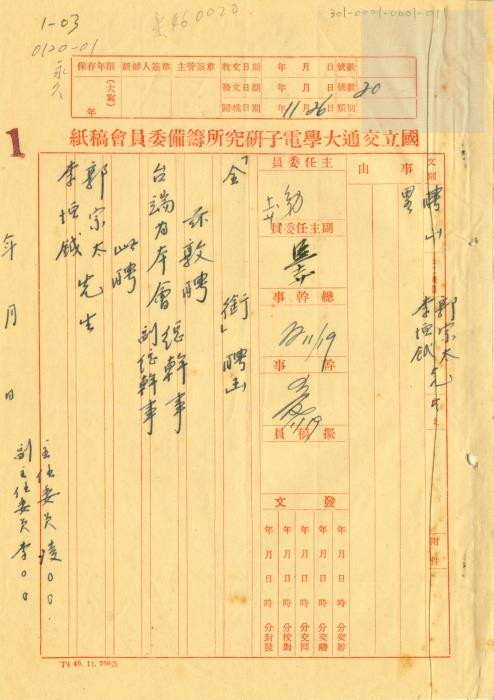 1-03
0120-01
永久
460020
301-0001-0001-011
保存年限 (大寫) 年
經辦人簽章
主管簽章
收文日期 年 月 日 號數
發文日期 年 月 日 號數 20
歸檔日期 年 11 月 26 日 類別
國立交通大學電子研究所籌備委員會稿紙
1
文別 聘函
事由
郭宗太
李垣鉞 先生
附件
主任委員
副主任委員
總幹事
11/19
幹事
11/19
擬稿員
發文
年 月 日 時 分交辦
年 月 日 時 分交繕
年 月 日 時 分交回
年 月 日 時 分校對
年 月 日 時 分封發
「全 銜」聘函
茲敦聘
台端為本會 總幹事
副總幹事
此聘
郭宗太
李垣鉞 先生
主任委員 凌○○
副主任委員 李○○
年 月 日
T4 46. 11. 700張